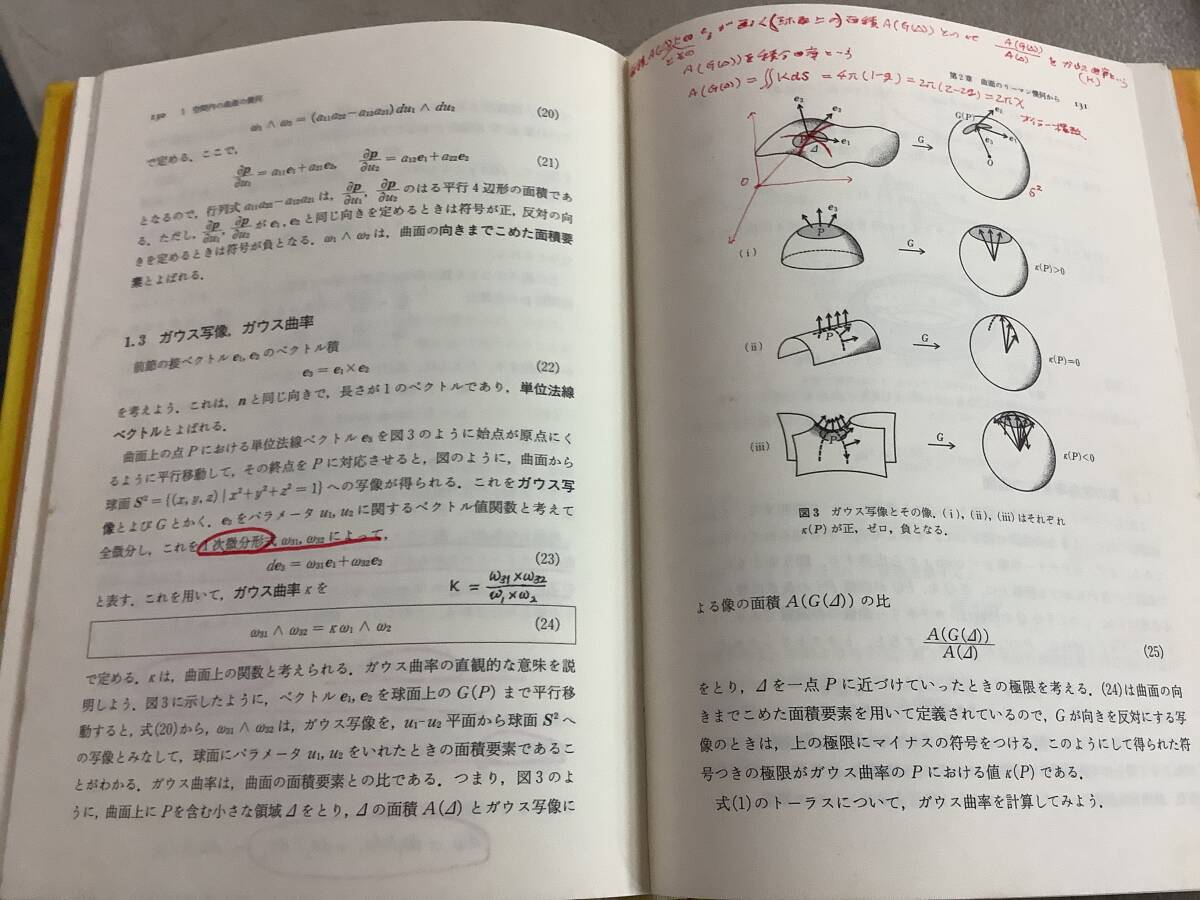 130 1 空間内の曲面の幾何
ω₁∧ω₂=(a₁₁a₂₂−a₁₂a₂₁)du₁∧du₂ (20)
で定める．ここで，
∂p/∂u₁=a₁₁e₁+a₂₁e₂, ∂p/∂u₂=a₁₂e₁+a₂₂e₂ (21)
となるので，行列式 a₁₁a₂₂−a₁₂a₂₁ は，∂p/∂u₁, ∂p/∂u₂ のはる平行4辺形の面積であ
る．ただし，∂p/∂u₁, ∂p/∂u₂ が e₁, e₂ と同じ向きを定めるときは符号が正，反対の向
きを定めるときは符号が負となる．ω₁∧ω₂ は，曲面の向きまでこめた面積要
素とよばれる．
1.3 ガウス写像，ガウス曲率
前節の接ベクトル e₁, e₂ のベクトル積
e₃=e₁×e₂ (22)
を考えよう．これは，n と同じ向きで，長さが1のベクトルであり，単位法線
ベクトルとよばれる．
曲面上の点 P における単位法線ベクトル e₃ を図3のように始点が原点にく
るように平行移動して，その終点を P に対応させると，図のように，曲面から
球面 S²={(x, y, z)|x²+y²+z²=1} への写像が得られる．これをガウス写
像とよび G とかく．e₃ をパラメータ u₁, u₂ に関するベクトル値関数と考えて
全微分し，これを1次微分形式 ω₃₁, ω₃₂ によって，
de₃=ω₃₁e₁+ω₃₂e₂ (23)
と表す．これを用いて，ガウス曲率 κ を K=ω₃₁×ω₃₂/ω₁×ω₂
ω₃₁∧ω₃₂=κω₁∧ω₂ (24)
で定める．κ は，曲面上の関数と考えられる．ガウス曲率の直観的な意味を説
明しよう．図3に示したように，ベクトル e₁, e₂ を球面上の G(P) まで平行移
動すると，式(20)から，ω₃₁∧ω₃₂ は，ガウス写像を，u₁-u₂ 平面から球面 S² へ
の写像とみなして，球面にパラメータ u₁, u₂ をいれたときの面積要素であるこ
とがわかる．ガウス曲率は，曲面の面積要素との比である．つまり，図3のよ
うに，曲面上に P を含む小さな領域 Δ をとり，Δ の面積 A(Δ) とガウス写像に
e₃が画く(球面上の)面積A(G(Δ))との比 A(G(Δ))/A(Δ) をガウス曲率という
(K)
A(G(Δ))を積分曲率という
A(G(Δ))=∬KdS=4π(1−g)=2π(2−2g)=2πχ
オイラー標数
第2章 曲面のリーマン幾何から 131
e₃ e₂ e₁ P Δ G G(P) e₃ e₂ e₁ O
O S²
(i) e₃ P G κ(P)>0
(ii) P G κ(P)=0
(iii) P G κ(P)<0
図3 ガウス写像とその像．(i), (ii), (iii)はそれぞれ
κ(P) が正，ゼロ，負となる．
よる像の面積 A(G(Δ)) の比
A(G(Δ))/A(Δ) (25)
をとり，Δ を一点 P に近づけていったときの極限を考える．(24)は曲面の向
きまでこめた面積要素を用いて定義されているので，G が向きを反対にする写
像のときは，上の極限にマイナスの符号をつける．このようにして得られた符
号つきの極限がガウス曲率の P における値 κ(P) である．
式(1)のトーラスについて，ガウス曲率を計算してみよう．